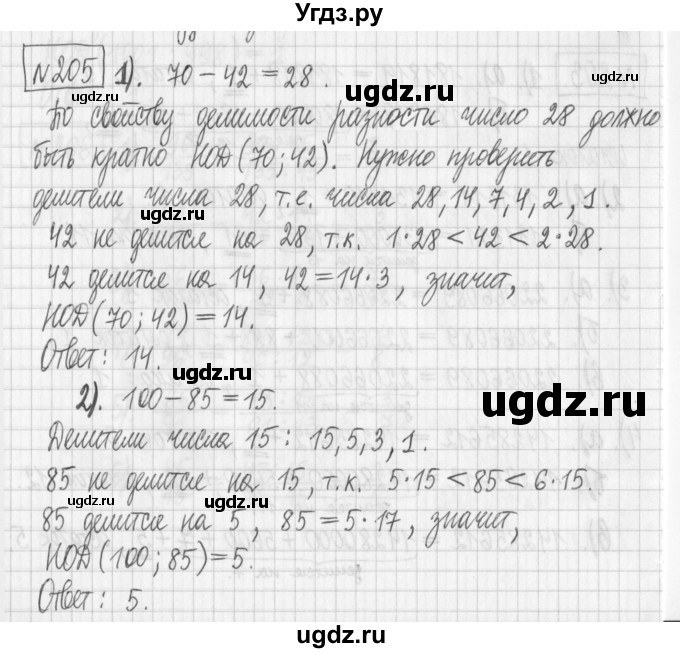 Угдз.ру
№205 1). 70 – 42 = 28.
ugdz.ru ugdz.ru ugdz.ru
По свойству делимости разности число 28 должно
быть кратно НОД (70; 42). Нужно проверить
делители числа 28, т.е. числа 28, 14, 7, 4, 2, 1.
ugdz.ru
42 не делится на 28, т.к. 1·28 < 42 < 2·28.
42 делится на 14, 42 = 14·3, значит,
НОД (70; 42) = 14.
Ответ: 14.
ugdz.ru ugdz.ru
2). 100 – 85 = 15.
ugdz.ru
Делители числа 15: 15, 5, 3, 1.
85 не делится на 15, т.к. 5·15 < 85 < 6·15.
ugdz.ru ugdz.ru
85 делится на 5, 85 = 5·17, значит,
НОД (100; 85) = 5.
ugdz.ru ugdz.ru
Ответ: 5.
ugdz.ru